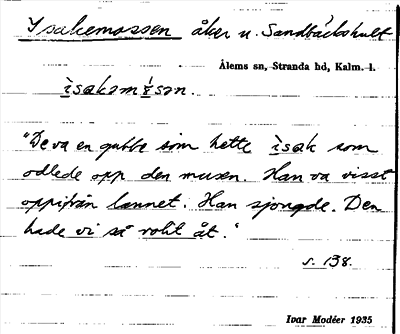 Isakemossen åker u. Sandbäckshult
Ålems sn, Stranda hd, Kalm. l.
ìsakəmɤsən.
"De va en gubbe som hette ìsak som
odlede opp den musen. Han va visst
oppifrån lannet. Han sjongde. Den
hade vi så roht åt."
s. 138.
Ivar Modéer 1935